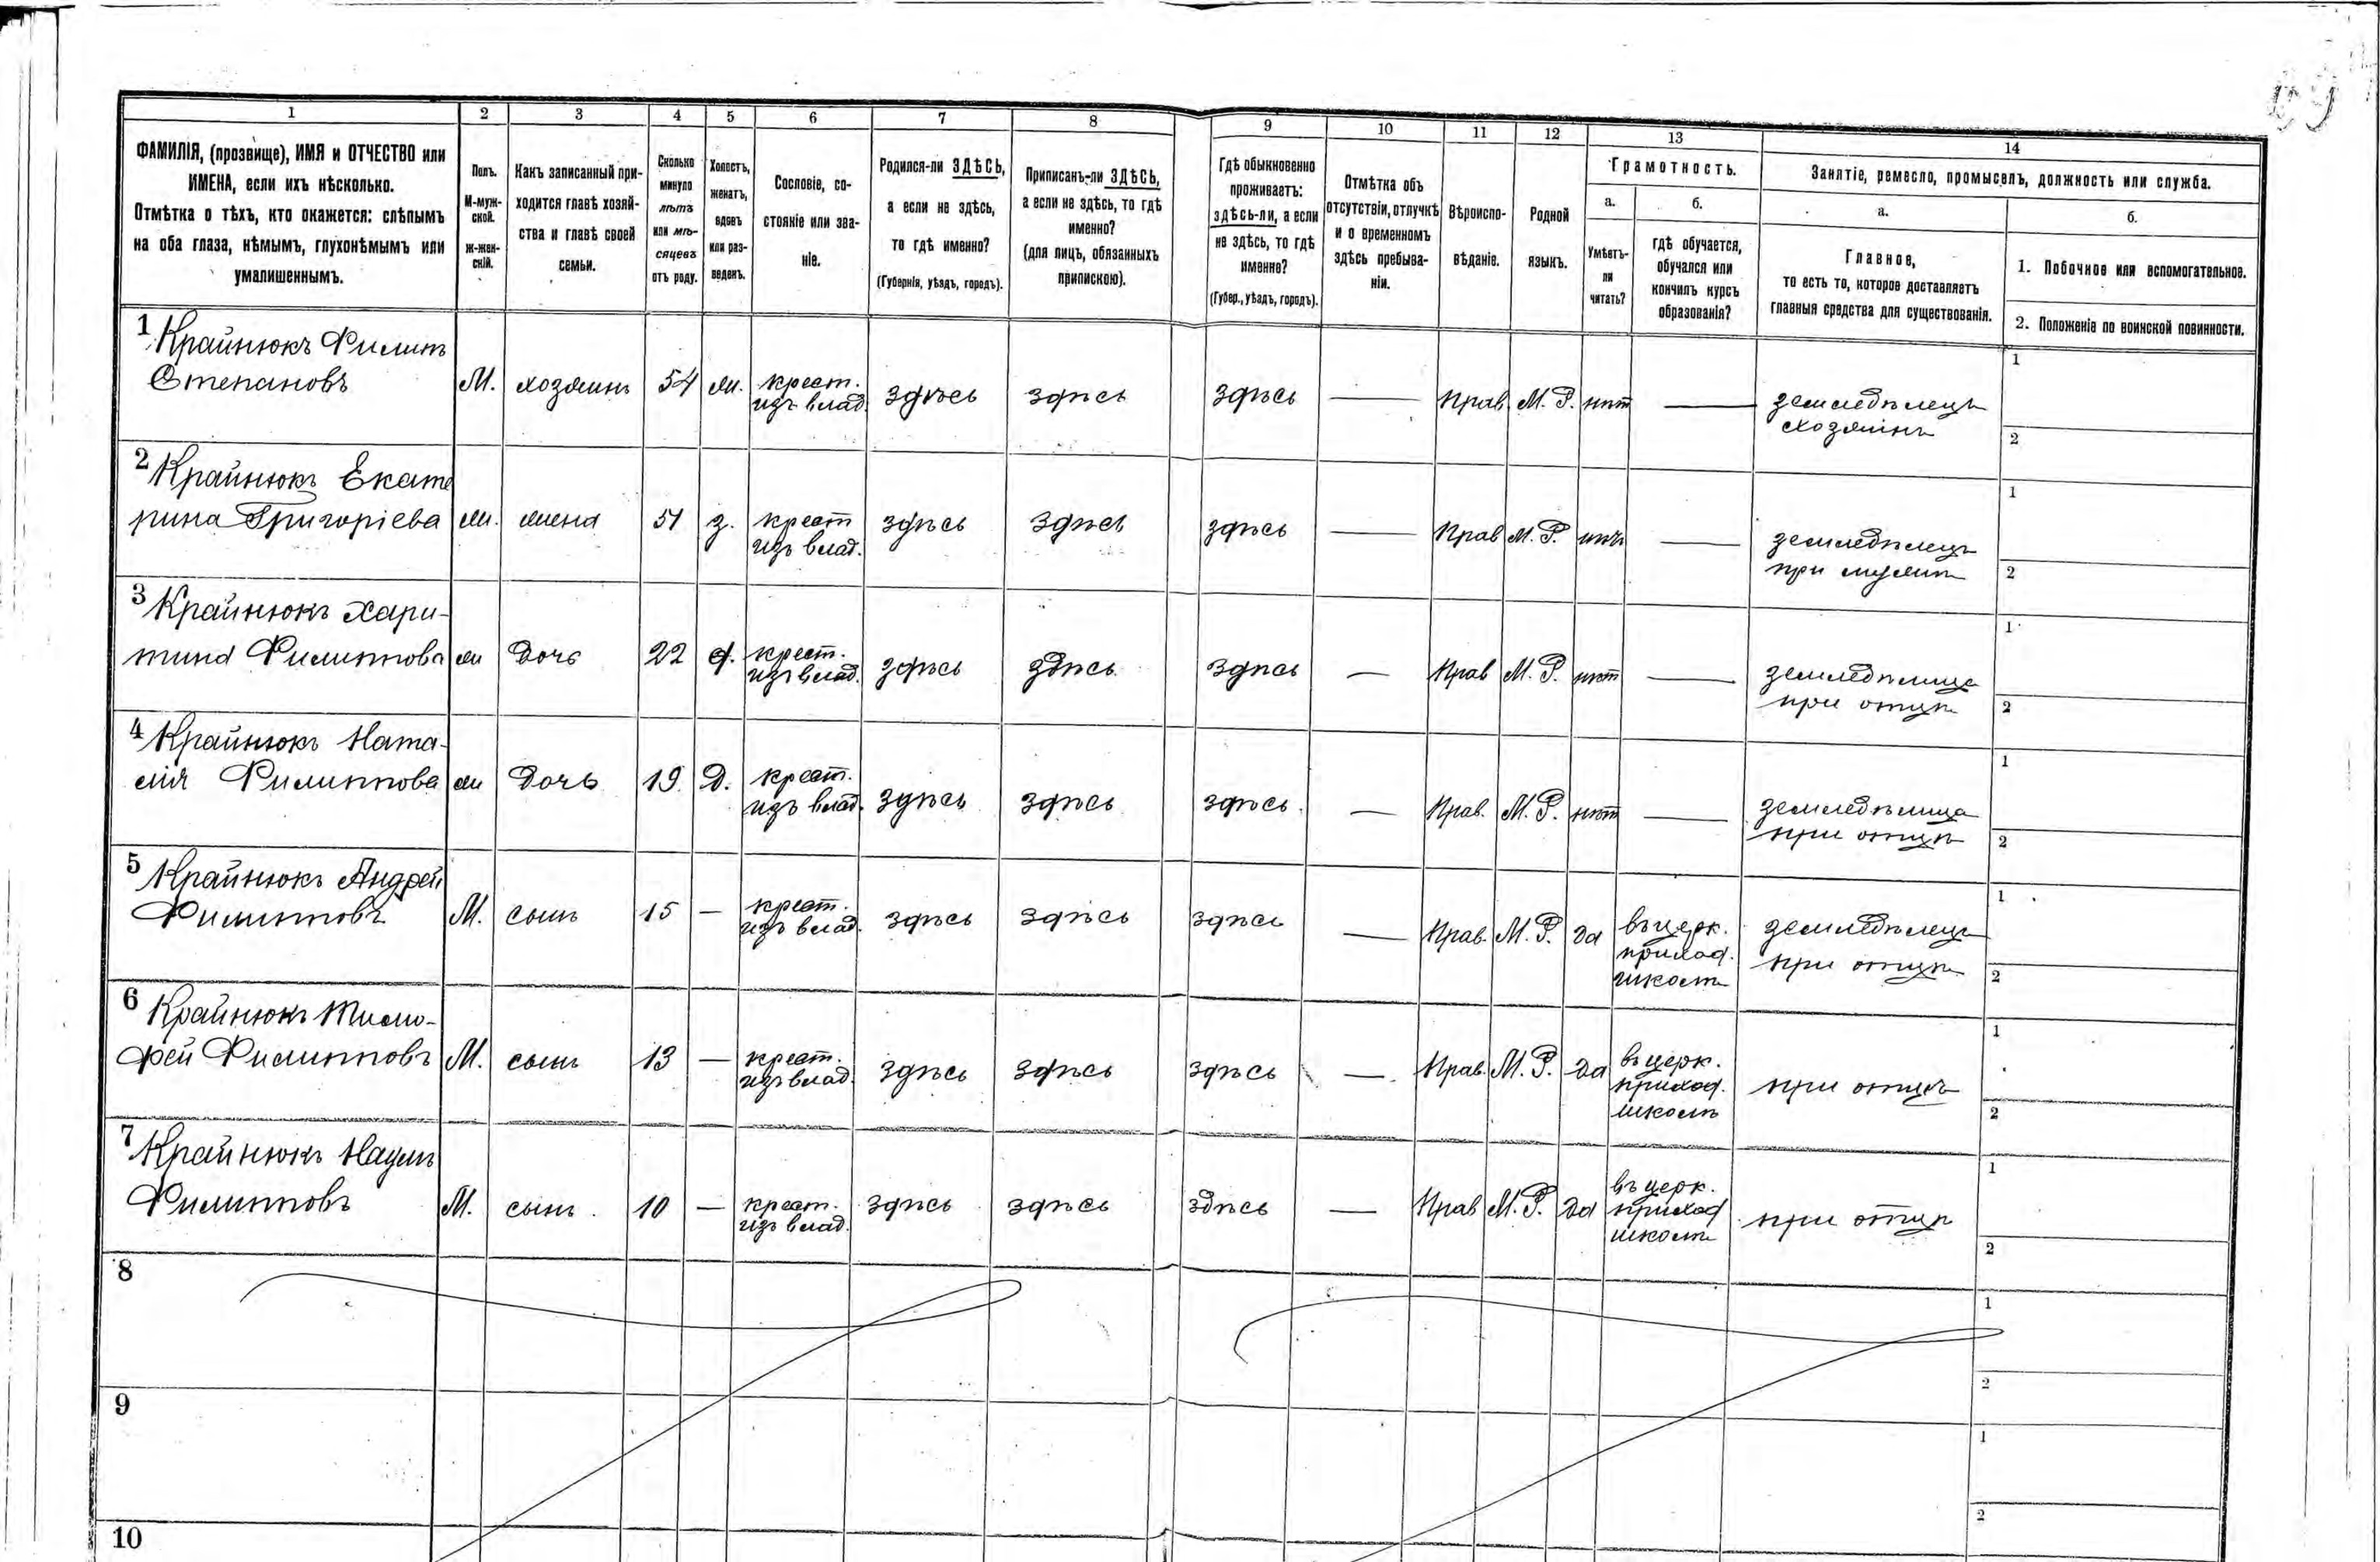 1 2 3 4 5 6 7 8 9 10 11 12 13 14
ФАМИЛІЯ, (прозвище), ИМЯ и ОТЧЕСТВО или
ИМЕНА, если ихъ нѣсколько.
Отмѣтка о тѣхъ, кто окажется: слѣпымъ
на оба глаза, нѣмымъ, глухонѣмымъ или
умалишеннымъ.
Полъ.
М-муж-
ской.
Ж-жен-
скій.
Какъ записанный при-
ходится главѣ хозяй-
ства и главѣ своей
семьи.
Сколько
минуло
лѣтъ
или мѣ-
сяцевъ
отъ роду.
Холостъ,
женатъ,
вдовъ
или раз-
веденъ.
Сословіе, со-
стояніе или зва-
ніе.
Родился-ли ЗДѢСЬ,
а если не здѣсь,
то гдѣ именно?
(Губернія, уѣздъ, городъ).
Приписанъ-ли ЗДѢСЬ,
а если не здѣсь, то гдѣ
именно?
(для лицъ, обязанныхъ
припискою).
Гдѣ обыкновенно
проживаетъ:
здѣсь-ли, а если
не здѣсь, то гдѣ
именно?
(Губер., уѣздъ, городъ).
Отмѣтка объ
отсутствіи, отлучкѣ
и о временномъ
здѣсь пребыва-
ніи.
Вѣроиспо-
вѣданіе.
Родной
языкъ.
Грамотность.
а.
Умѣетъ-
ли
читать?
б.
гдѣ обучается,
обучался или
кончилъ курсъ
образованія?
Занятіе, ремесло, промыселъ, должность или служба.
а.
Главное,
то есть то, которое доставляетъ
главныя средства для существованія.
б.
1. Побочное или вспомогательное.
2. Положеніе по воинской повинности.
1 Крайнюкъ Филипъ
Степановъ М. хозяинъ 54 ж. крест.
изъ влад. здѣсь здѣсь здѣсь — Прав М. Р. нѣт — земледѣлецъ
хозяинъ
1
2
2 Крайнюкъ Екате
рина Григоріева ж. жена 51 з. крест
изъ влад. здѣсь здѣсь здѣсь — Прав М. Р. нѣтъ — земледѣлецъ
при мужѣ
1
2
3 Крайнюкъ Хари-
тина Филиппова ж Дочь 22 крест.
изъ влад. здѣсь здѣсь здѣсь — Прав М. Р. нѣт — земледѣлица
при отцѣ
1
2
4 Крайнюкъ Ната-
лія Филиппова ж Дочь 19 Д. крест.
изъ влад. здѣсь здѣсь здѣсь — Прав. М. Р. нѣт — земледѣлица
при отцѣ
1
2
5 Крайнюкъ Андрей
Филипповъ М. сынъ 15 — крест.
изъ влад. здѣсь здѣсь здѣсь — Прав. М. Р. да въ церк.
приход.
школѣ
земледѣлецъ
при отцѣ
1
2
6 Крайнюкъ Тимо-
фей Филипповъ М. сынъ 13 — крест.
изъ влад. здѣсь здѣсь здѣсь — Прав. М. Р. да въ церк.
приход.
школѣ
при отцѣ
1
2
7 Крайнюкъ Наумъ
Филипповъ М. сынъ 10 — крест.
изъ влад. здѣсь здѣсь здѣсь — Прав М. Р. да въ церк.
приход
школѣ
при отцѣ
1
2
8
1
2
9
1
2
10